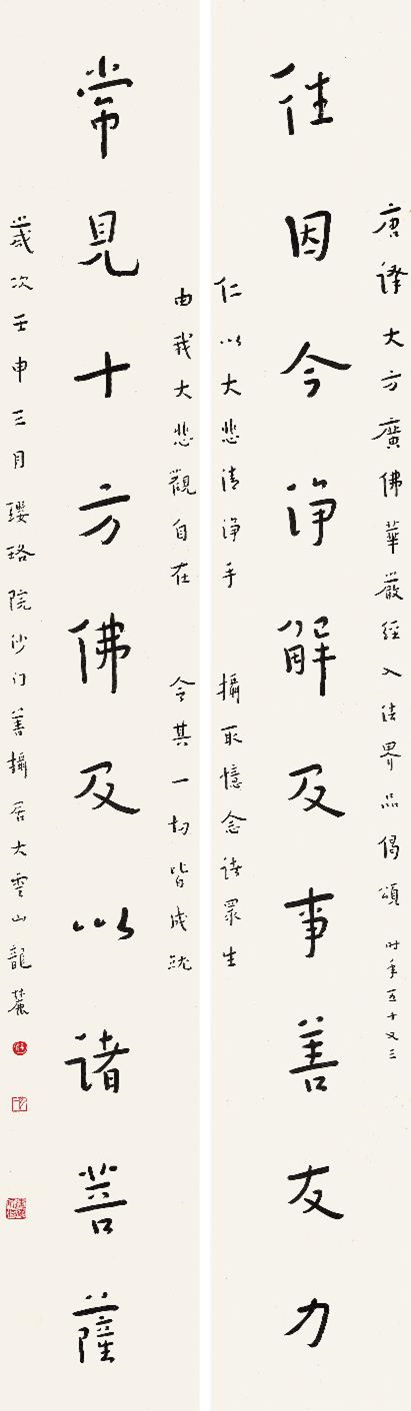 唐譯大方廣佛華嚴經入法界品偈頌 時年五十又三
往因今淨解及事善友力
仁以大悲清淨手 攝取憶念諸眾生
由我大悲觀自在 令其一切皆成就
常見十方佛及以諸菩薩
歲次壬申三月瓔珞院沙门善攝居大雲山龍麓